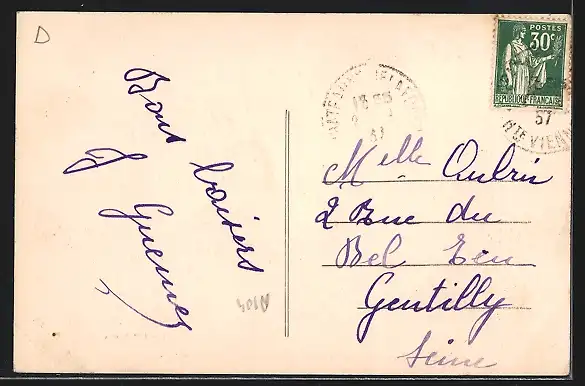 D
Bons baisers
POSTES
30c
REPUBLIQUE FRANÇAISE
37
Hte VIENNE
Melle Aubrin
2 Rue du
Bel Eeu
Gentilly
Seine